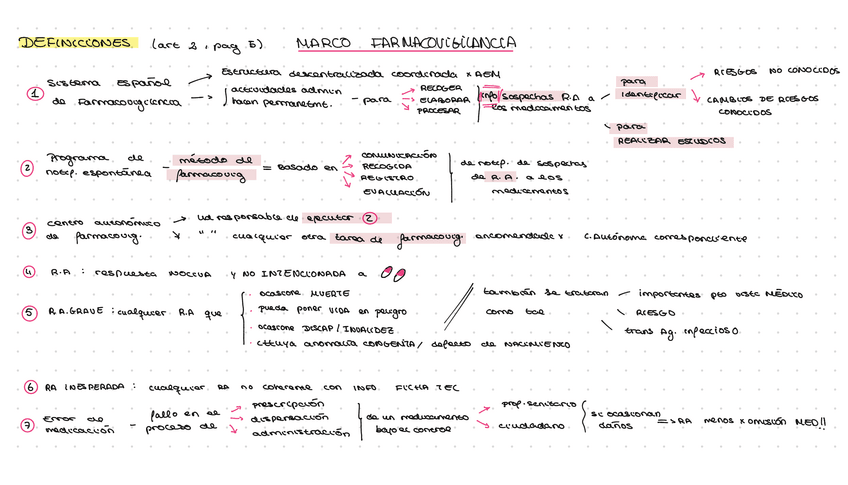 DEFINICIONES (art 2, pag 5) MARCO FARMACOVIGILANCIA
① Sistema Español de Farmacovigilancia
→ Estructura descentralizada coordinada x AEM
→ actividades admin
hacen permanetmt. - para → RECOGER
→ ELABORAR
→ PROCESAR
info sospechas R.A a
los medicamentos
para
identificar → RIESGOS NO CONOCIDOS
→ CAMBIOS DE RIESGOS
CONOCIDOS
para
REALIZAR ESTUDIOS
② Programa de
notif. espontánea - método de
farmacovig = basado en → COMUNICACIÓN
→ RECOGIDA
→ REGISTRO
→ EVALUACIÓN
de notif. de sospechas
de R.A. a los
medicamentos
③ centro autonómico
de farmacovig.
→ ud responsable de ejecutar ②
→ " " cualquier otra tarea de farmacovig. encomendada x C. Autónoma correspondiente
④ R.A : respuesta NOCIVA y NO INTENCIONADA a
⑤ R.A. GRAVE : cualquier R.A que
· ocasione MUERTE
· pueda poner VIDA en peligro
· ocasione DISCAP / INVALIDEZ
· cttuya anomalía CONGENITA / defecto de NACIMIENTO
también se trataran
como tal
importantes pto vista MÉDICO
RIESGO
trans Ag. infeccioso
⑥ RA INESPERADA : cualquier RA no coherente con INFO. FICHA TEC
⑦ Error de
medicación - fallo en el
proceso de → prescripción
→ dispensación
→ administración
de un medicamento
bajo el control
→ prof. sanitario
→ ciudadano
si ocasionan
daños => RA menos x omisión MED!!